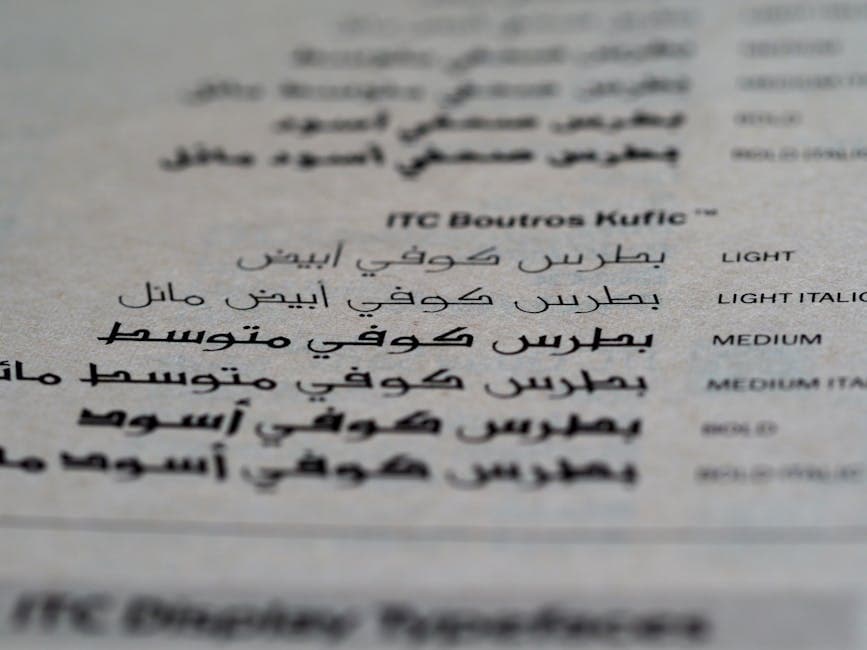 بطرس صحفي أسود BOLD
بطرس صحفي أسود مائل BOLD ITALIC
ITC Boutros Kufic™
بطرس كوفي أبيض LIGHT
بطرس كوفي أبيض مائل LIGHT ITALIC
بطرس كوفي متوسط MEDIUM
بطرس كوفي متوسط MEDIUM ITA
بطرس كوفي أسود BOLD
بطرس كوفي أسود BOLD ITALIC
ITC Display Typefaces